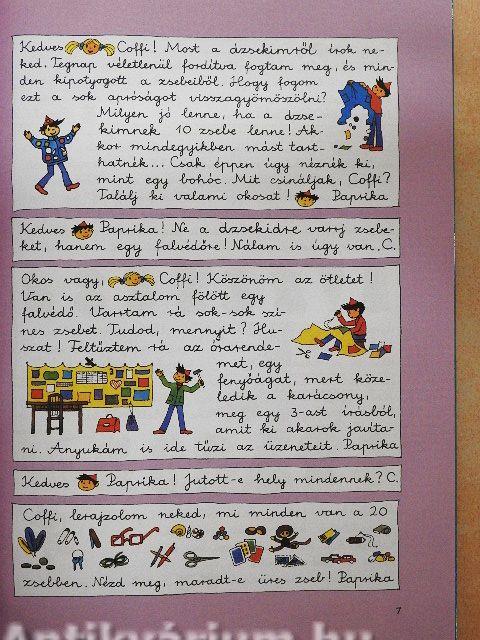 Kedves Coffi! Most a dzsekimről írok ne-
ked. Tegnap véletlenül fordítva fogtam meg, és min-
den kipotyogott a zsebeiből. Hogy fogom
ezt a sok apróságot visszagyömöszölni?
Milyen jó lenne, ha a dzse-
kimnek 10 zsebe lenne! Ak-
kor mindegyikben mást tart-
hatnék... Csak éppen úgy néznék ki,
mint egy bohóc. Mit csináljak, Coffi?
Találj ki valami okosat! Paprika
Kedves Paprika! Ne a dzsekidre varrj zsebe-
ket, hanem egy falvédőre! Nálam is úgy van. C.
Okos vagy, Coffi! Köszönöm az ötletet!
Van is az asztalom fölött egy
falvédő. Varrtam rá sok-sok szí-
nes zsebet. Tudod, mennyit? Hu-
szat! Feltűztem rá az órarende-
met, egy
fenyőágat, mert köze-
ledik a karácsony,
meg egy 3-ast írásból,
amit ki akarok javíta-
ni. Anyukám is ide tűzi az üzeneteit. Paprika
Kedves Paprika! Jutott-e hely mindennek? C.
Coffi, lerajzolom neked, mi minden van a 20
zsebben. Nézd meg, maradt-e üres zseb! Paprika
7
Antikvárium.hu